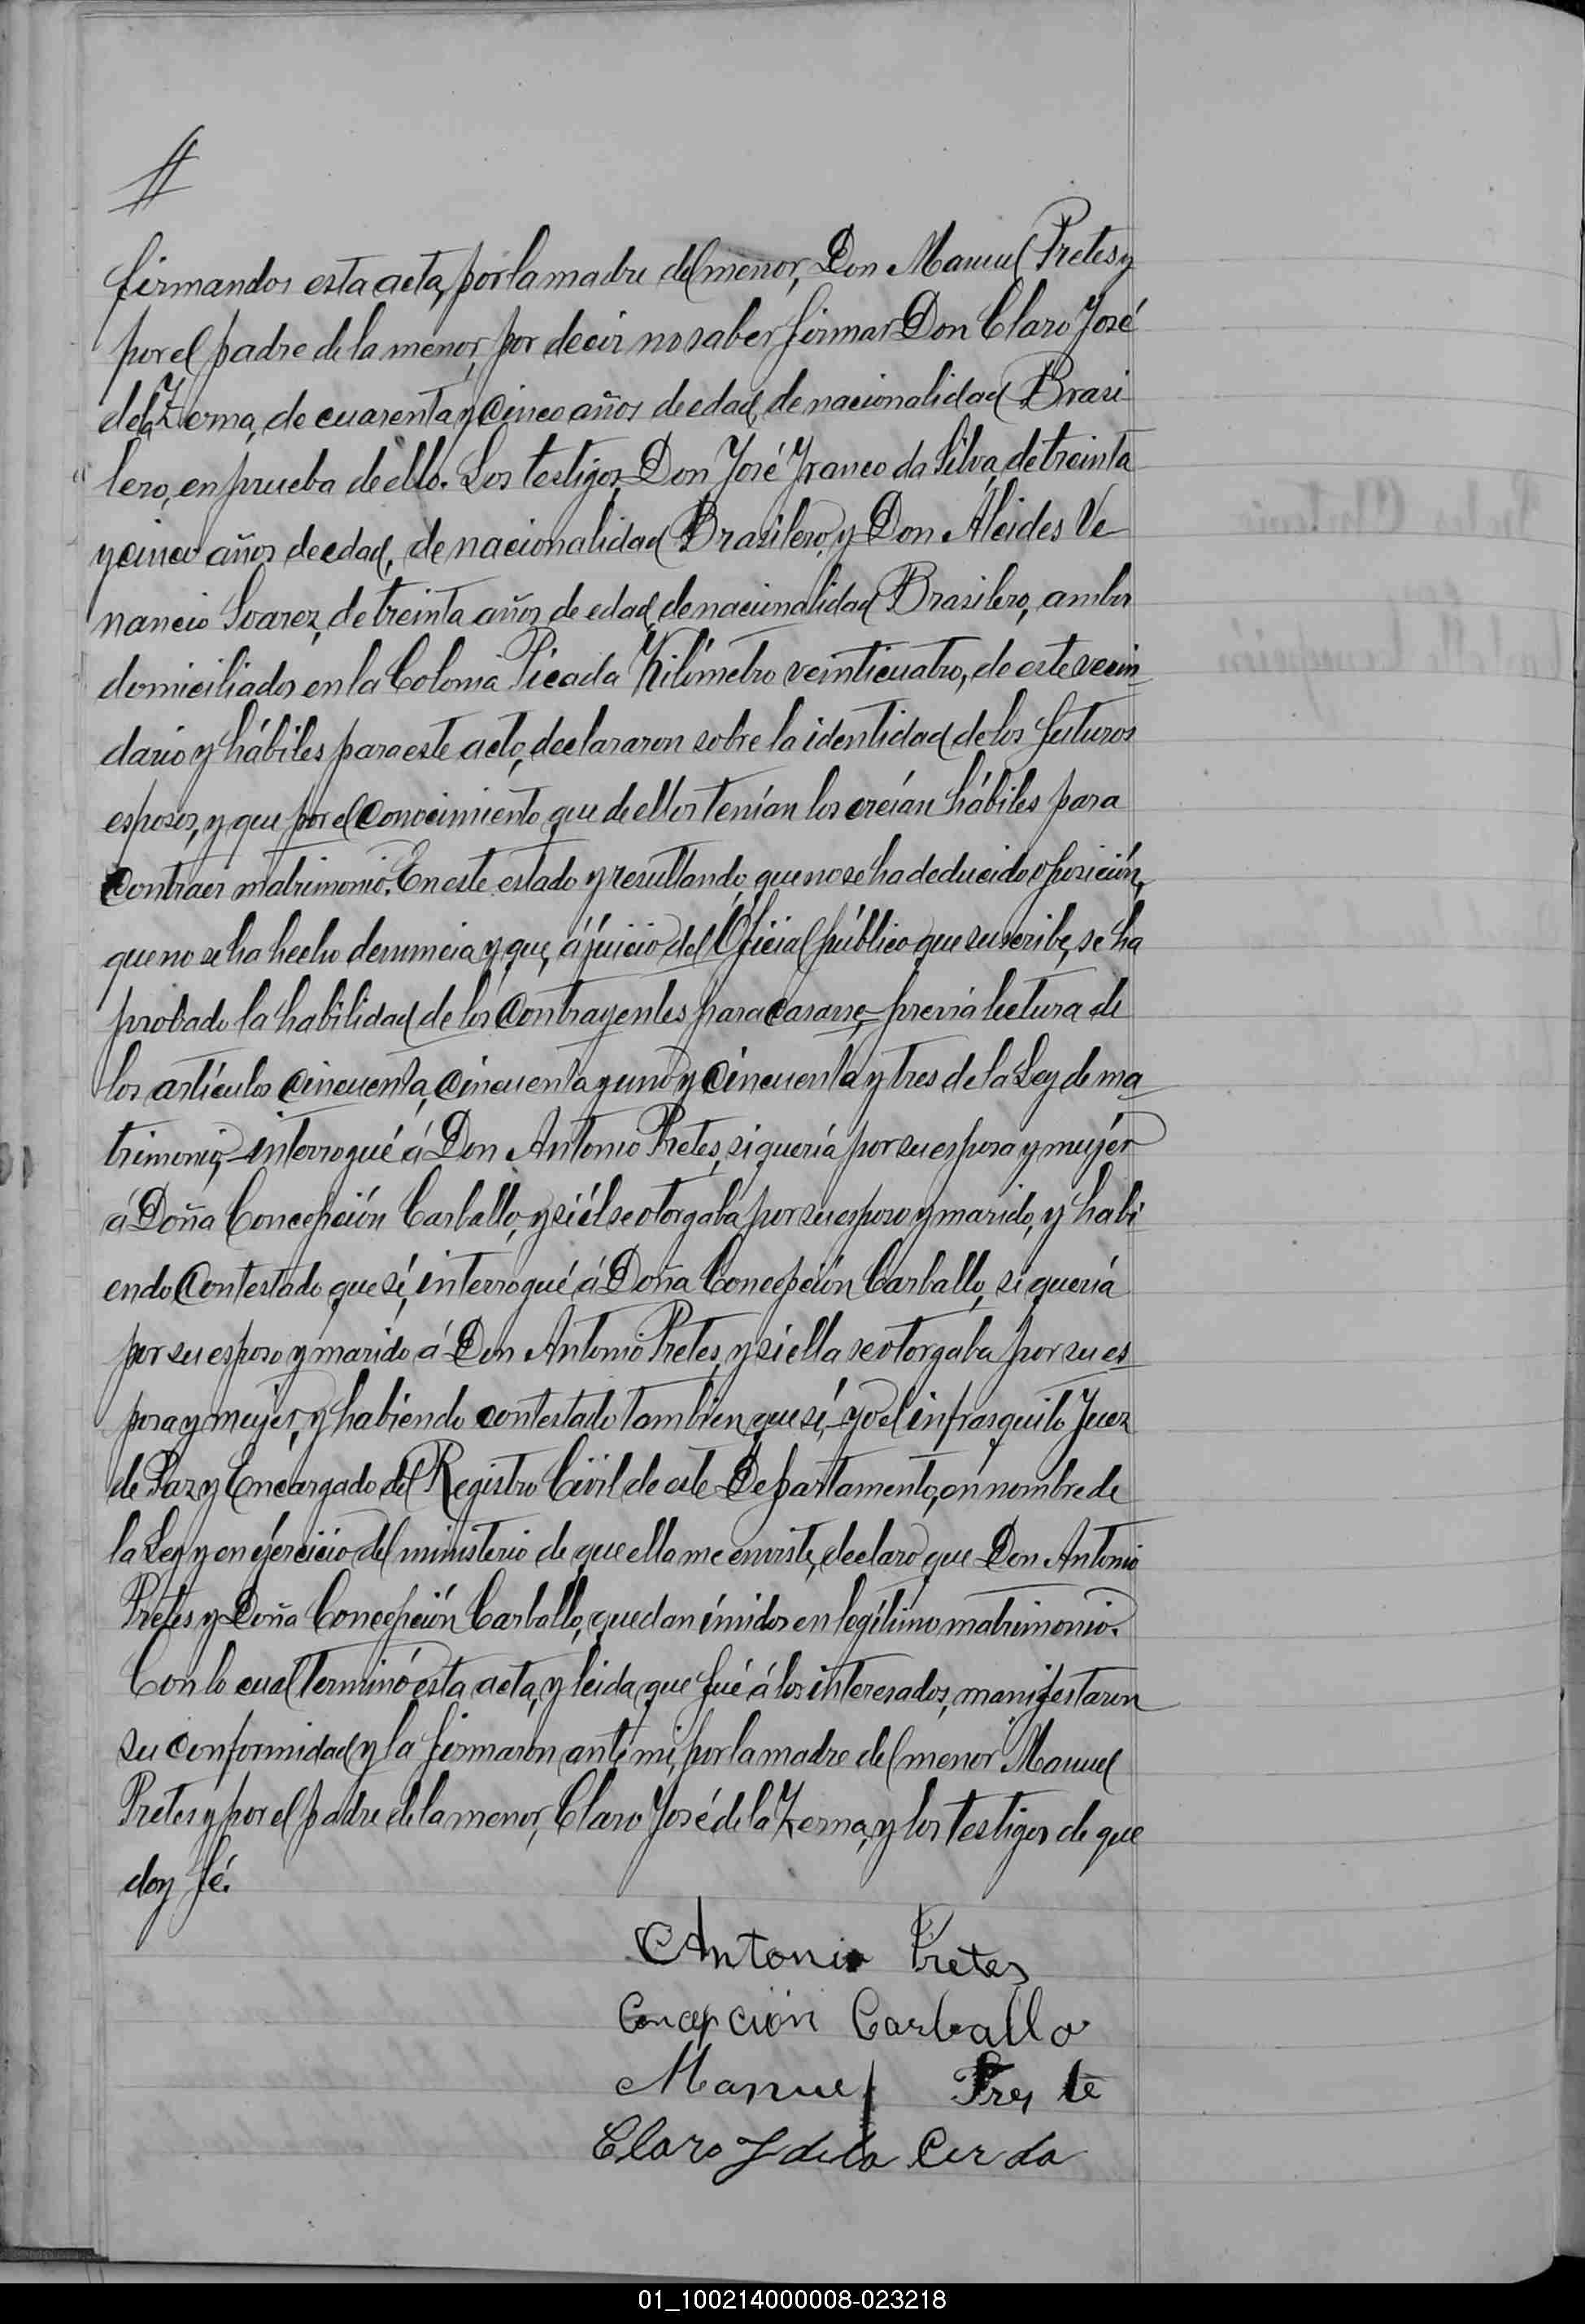 firmandos esta acta, por la madre del menor, Don Manuel Pretes y
por el padre de la menor, por decir no saber firmar Don Claro José
de la Zerna, de cuarenta y cinco años de edad, de nacionalidad Brasi-
lero, en prueba de ello. Los testigos, Don José Franco da Silva, de treinta
y cinco años de edad, de nacionalidad Brasilero, y Don Alcides Ve-
nancio Soarez, de treinta años de edad, de nacionalidad Brasilero, ambos
domiciliados en la Colonia Picada Kilómetro veinticuatro, de este vecin-
dario y hábiles para este acto, declararon sobre la identidad de los futuros
esposos, y que por el conocimiento que de ellos tenían los creían hábiles para
contraer matrimonio. En este estado y resultando, que no se ha deducido oposición,
que no se ha hecho denuncia y que, á juicio del Oficial público que suscribe, se ha
probado la habilidad de los contrayentes para casarse, previa lectura de
los artículos cincuenta, cincuenta y uno y cincuenta y tres de la Ley de ma-
trimonio, interrogué á Don Antonio Pretes, si quería por su esposa y mujér
á Doña Concepción Carballo, y si él se otorgaba por su esposo y marido, y habi-
endo contestado que sí, interrogué á Doña Concepción Carballo, si quería
por su esposo y marido á Don Antonio Pretes, y si ella se otorgaba por su es-
posa y mujer, y habiendo contestado tambien que sí, yo el infrasquito Juez
de Paz y Encargado del Registro Civil de este Departamento, en nombre de
la Ley y en éjercicio del ministerio de que ella me enviste, declaro que Don Antonio
Pretes y Doña Concepción Carballo, quedan únidos en legítimo matrimonio.
Con lo cual terminó esta acta, y leida que fué á los interesados, manifestaron
su conformidad y la firmaron ante mi, por la madre del menor Manuel
Pretes y por el padre de la menor, Claro José de la Zerna, y los testigos de que
doy fé.
Antonio Pretes
Concepción Carballo
Manuel Prete
Claro J de la Cerda
01_100214000008-023218